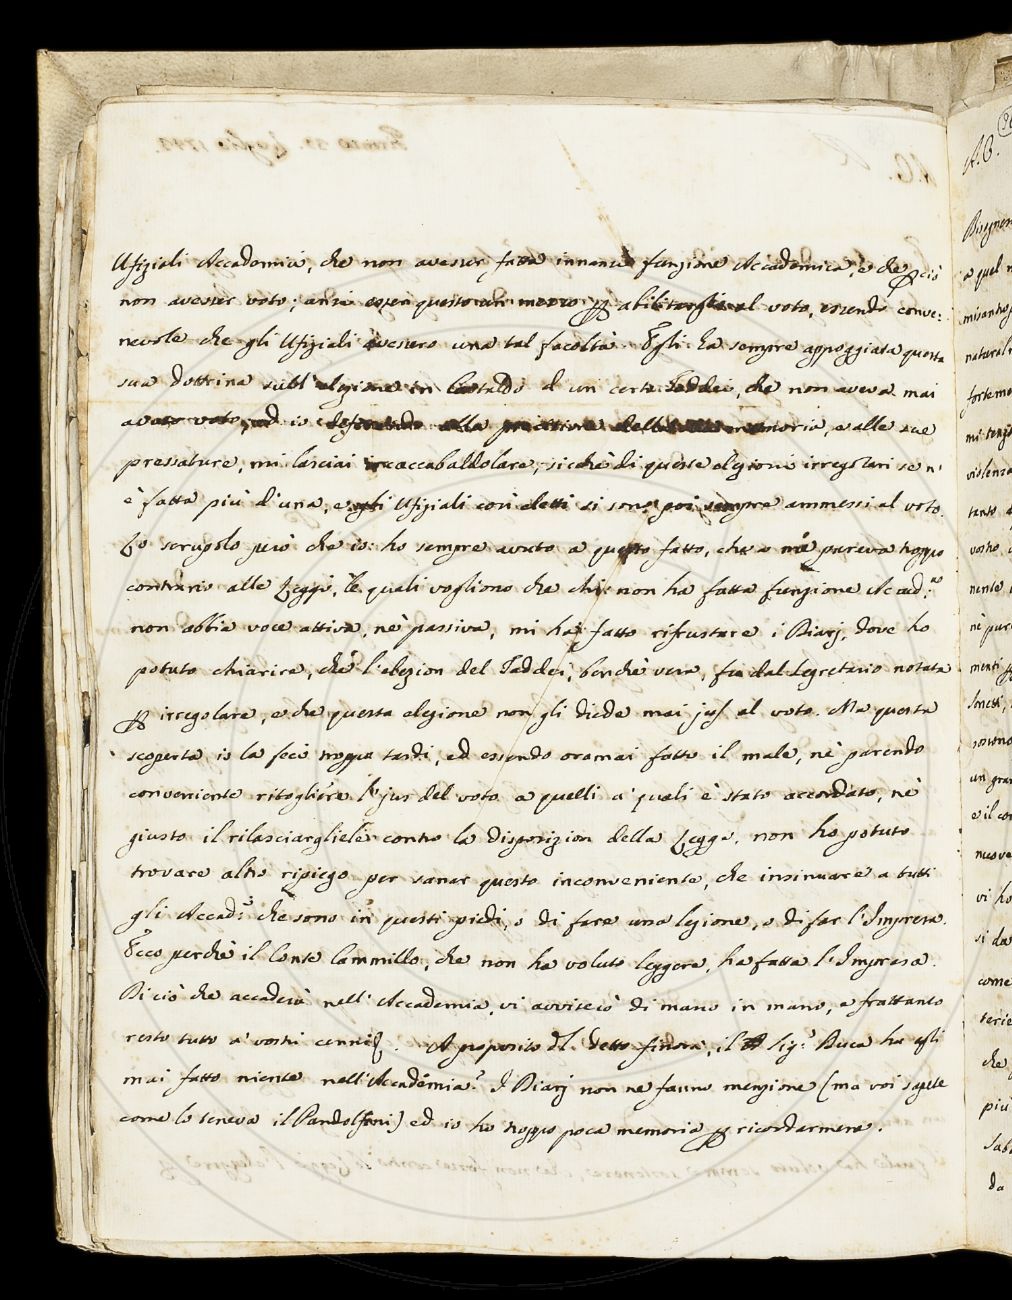 Ufiziali Accademici, che non avesser fatta innanzi funzione Accademica, e che ciò
non avesser voto; anzi esser questo un mezzo abilitargli al voto, essendo conve=
nevole che gli Ufiziali avessero una tal facoltà. Egli ha sempre appoggiata questa
sua dottrina sull' elezione in Castaldo d' un certo Taddei, che non aveva mai
avuto voto, ed io deferendo alla memoria, e alle sue
pressature, mi lasciai incaccabaldolare, sicchè di queste elezioni irregolari se n'
è fatta più d' una, e gli Ufiziali così eletti si son poi sempre ammessi al voto.
Lo scrupolo però che io ho sempre avuto a questo fatto, che a me pareva troppo
contrario alle Leggi, le quali vogliono che chi non ha fatta funzione Accad.ca
non abbia voce attiva, nè passiva, mi ha fatto rifrustare i Diarj, dove ho
potuto chiarire, che l' elezion del Taddei, benchè vera, fu dal Segretario notata
irregolare, e che questa elezione non gli diede mai jus al voto. Ma questa
scoperta io la feci troppo tardi, ed essendo oramai fatto il male, nè parendo
conveniente ritogliere l' jus del voto a quelli a' quali è stato accordato, nè
giusto il rilasciarglielo contro la disposizion della Legge, non ho potuto
trovare altro ripiego per sanar questo inconveniente, che insinuare a tutti
gli Accad.i che sono in questi piedi, o di fare una lezione, o di far l' Impresa.
Ecco perchè il Conte Cammillo, che non ha voluto leggere, ha fatta l' Impresa.
Di ciò che accaderà nell' Accademia, vi avviserò di mano in mano, e frattanto
resto tutto a' vostri cenni. A proposito del detto finora, il Sig.r Duca ha egli
mai fatto niente nell' Accademia? I Diarj non ne fanno menzione (ma voi sapete
come lo teneva il Pandolfini) ed io ho troppo poca memoria ricordarmene.